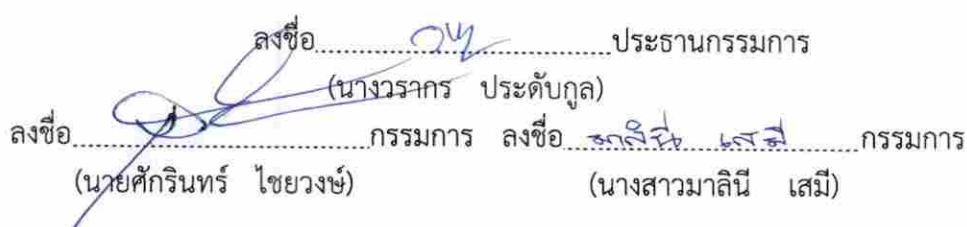 ลงชื่อ.......................................ประธานกรรมการ
(นางวรากร ประดับกูล)
ลงชื่อ.......................................กรรมการ ลงชื่อ มาลินี เสมี กรรมการ
(นายศักรินทร์ ไชยวงษ์) (นางสาวมาลินี เสมี)